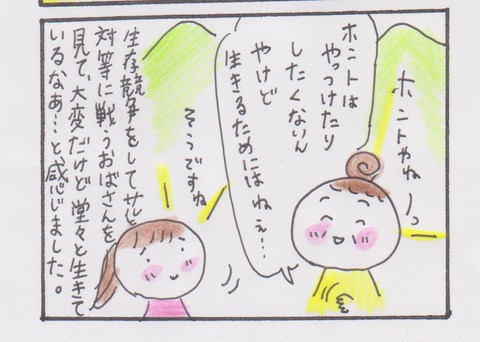 ホントやねーっ
ホントは
やっつけたり
したくないん
やけど
生きるためにはねぇ…
そうですね
生存競争をしてサルと
対等に戦うおばさんを
見て、大変だけど堂々と生きて
いるなあ…と感じました。